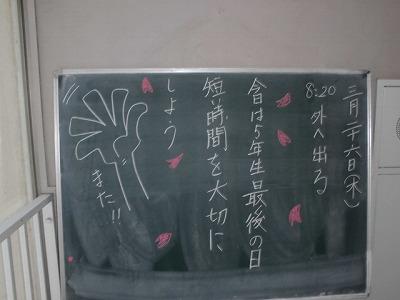 三月二十六日(木)
8:20 外へ出る
今日は5年生最後の日
短時間を大切に
しよう
また!!